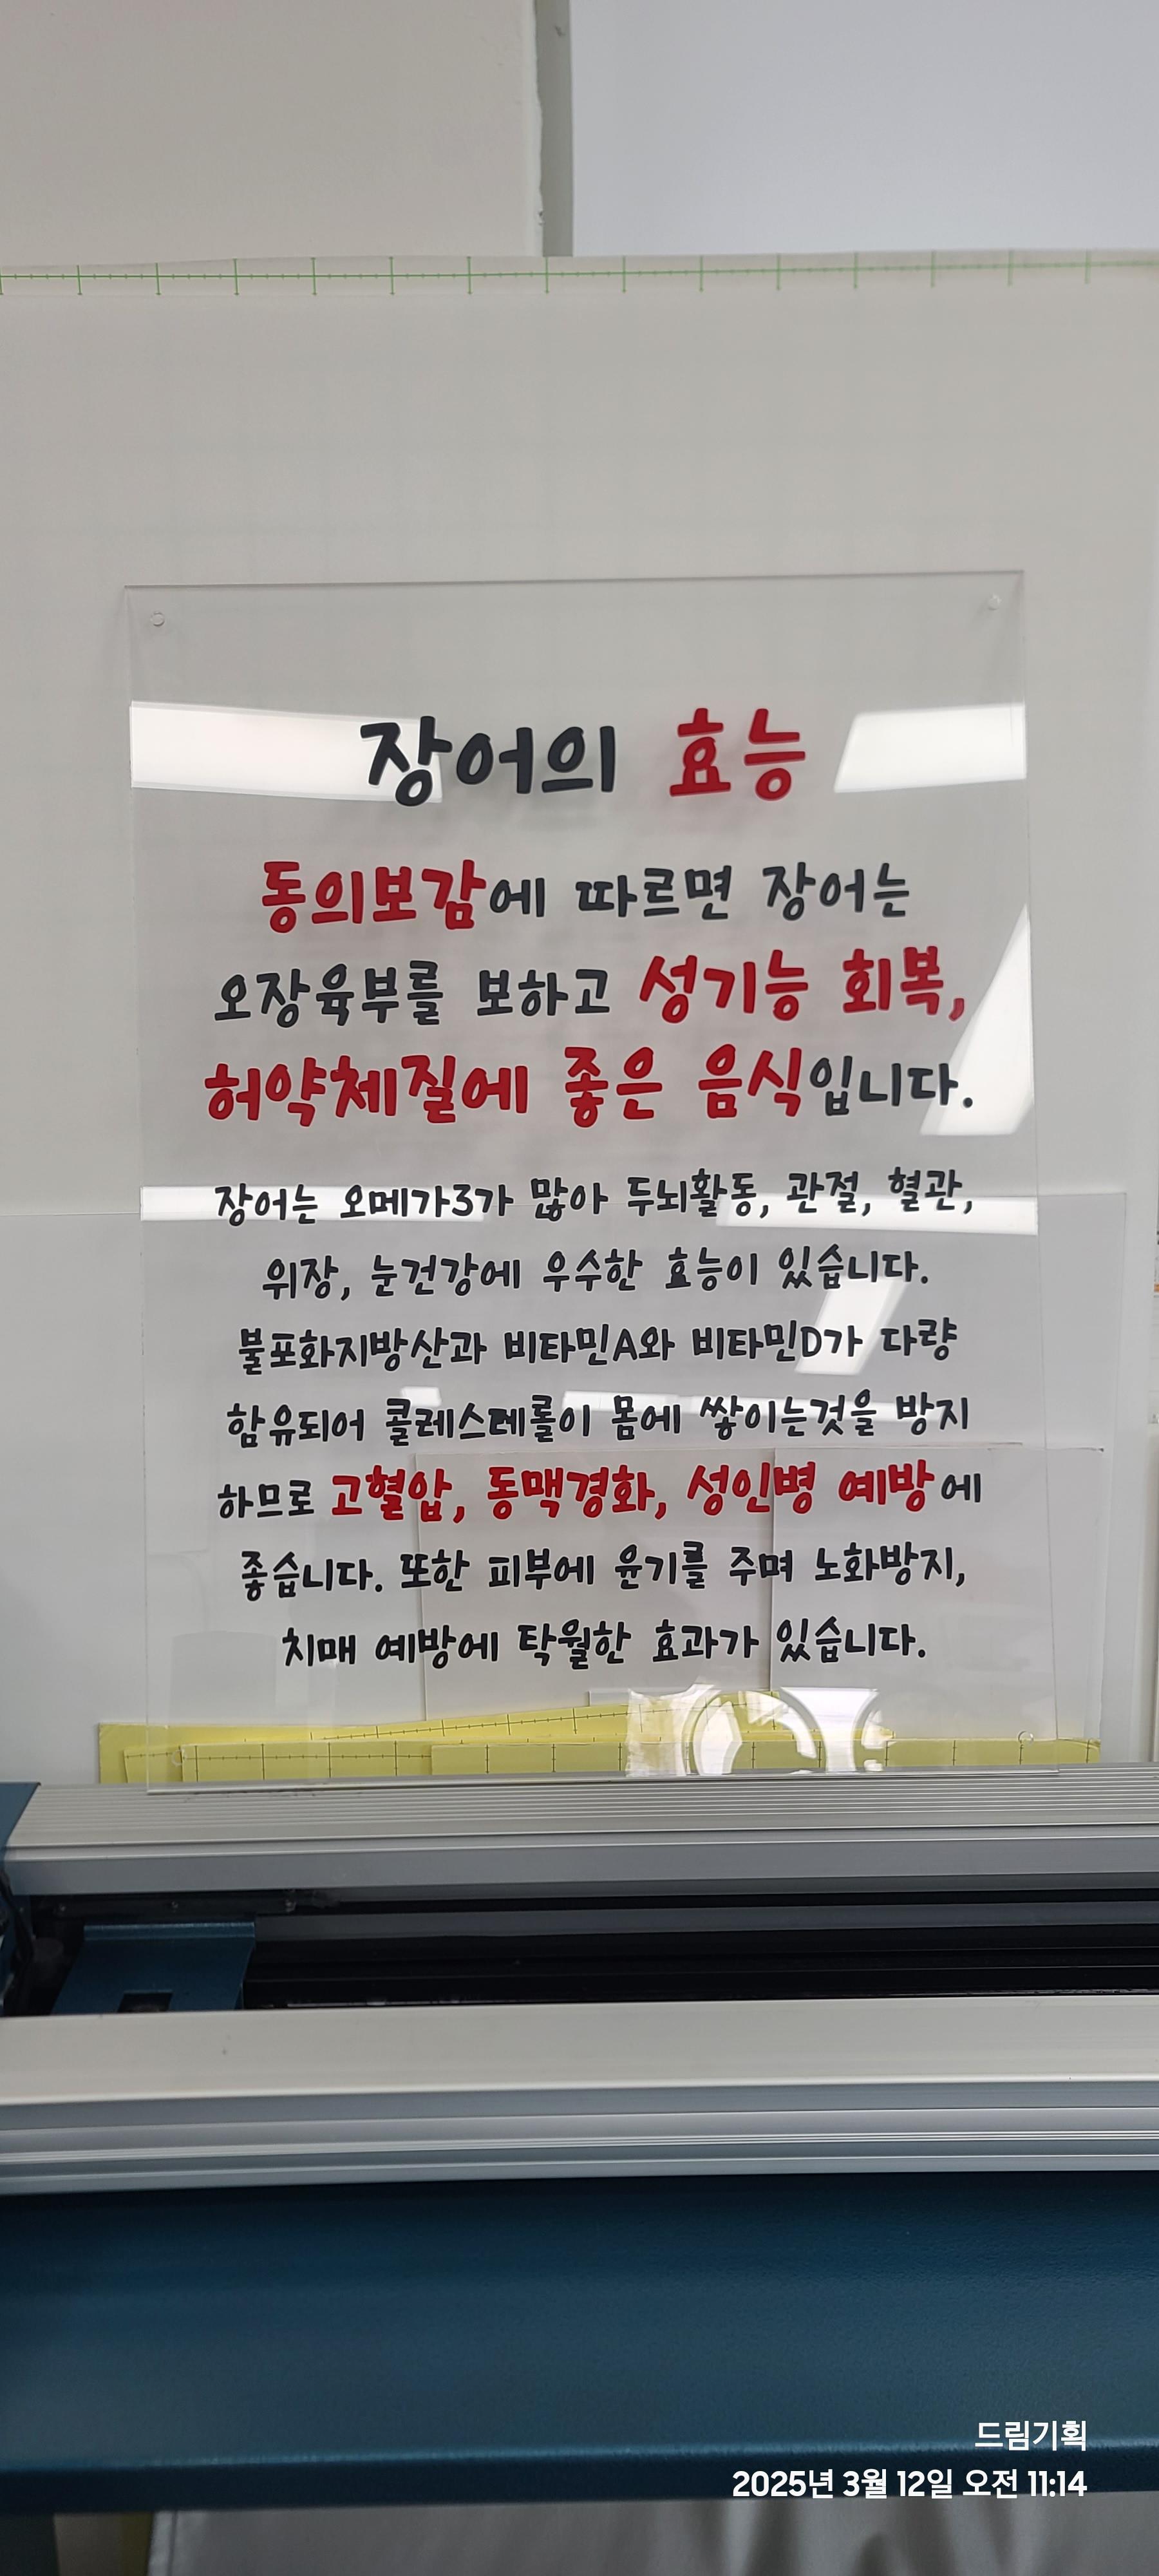 장어의 효능
동의보감에 따르면 장어는
오장육부를 보하고 성기능 회복,
허약체질에 좋은 음식입니다.
장어는 오메가3가 많아 두뇌활동, 관절, 혈관,
위장, 눈건강에 우수한 효능이 있습니다.
불포화지방산과 비타민A와 비타민D가 다량
함유되어 콜레스테롤이 몸에 쌓이는것을 방지
하므로 고혈압, 동맥경화, 성인병 예방에
좋습니다. 또한 피부에 윤기를 주며 노화방지,
치매 예방에 탁월한 효과가 있습니다.
드림기획
2025년 3월 12일 오전 11:14